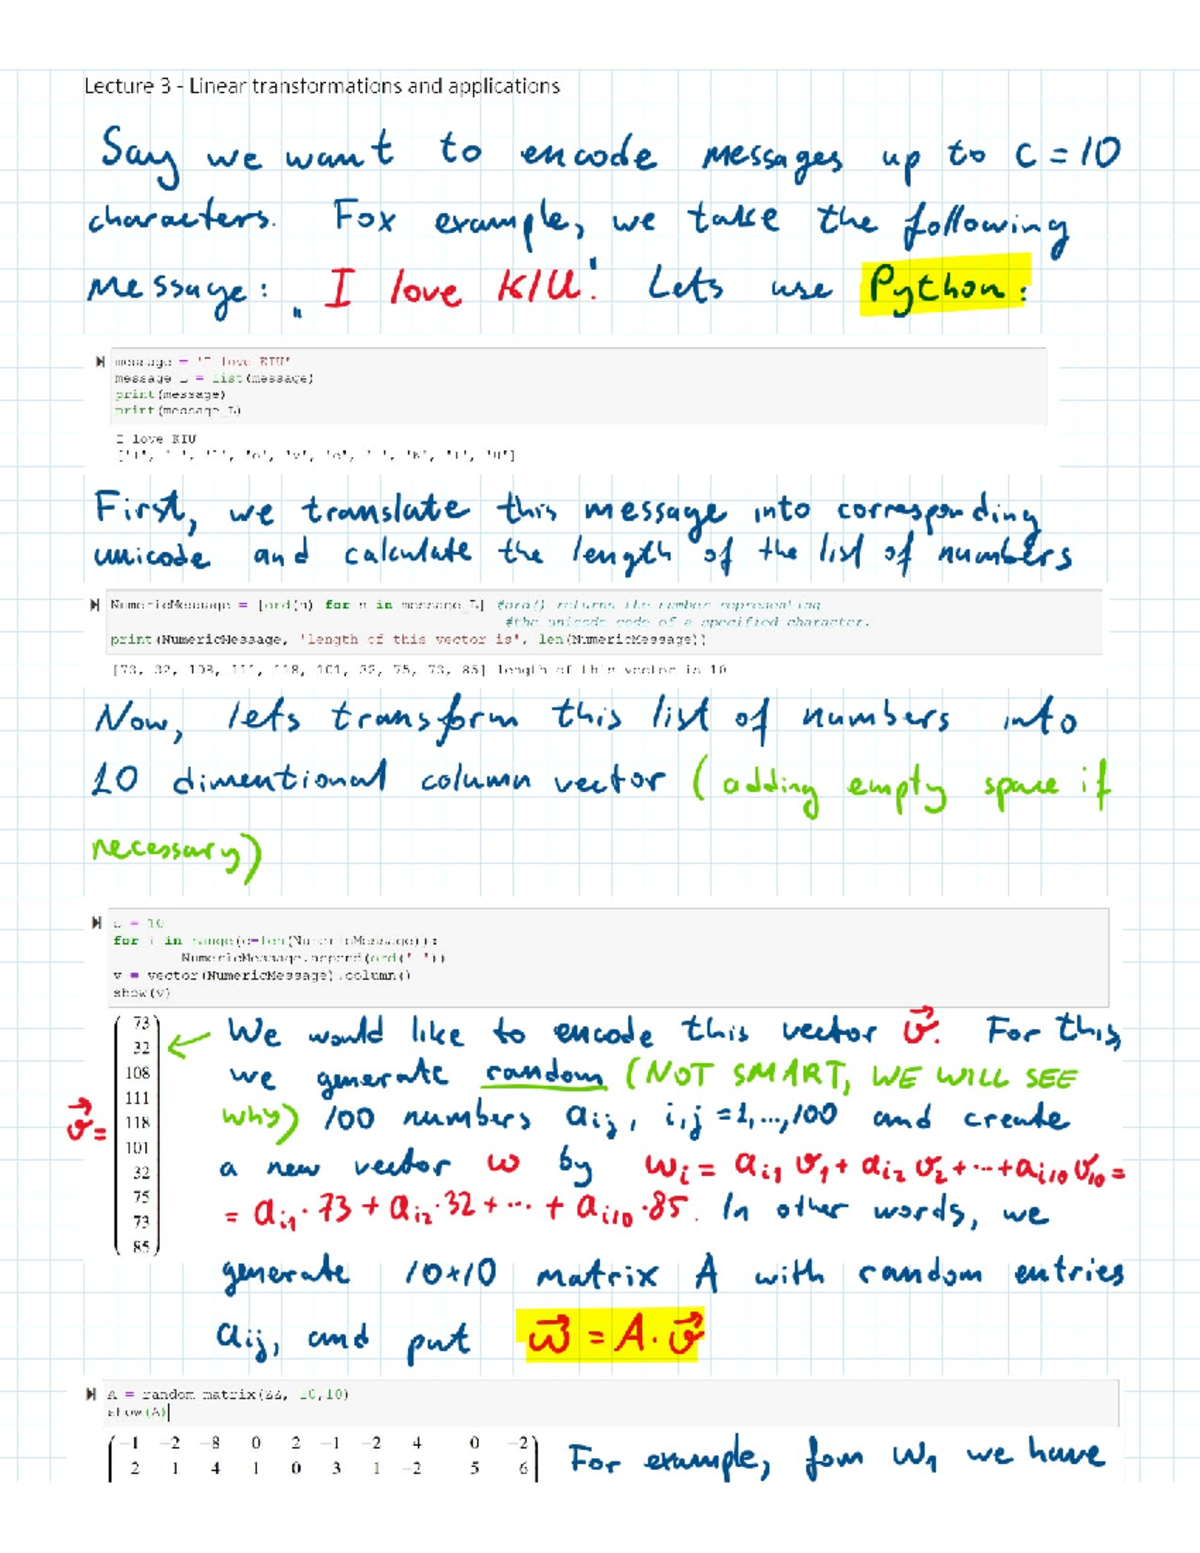 Lecture 3 - Linear transformations and applications
Say we want to encode messages up to c = 10
characters. Fox example, we take the following
message: „I love KIU". Lets use Python:
message = 'I love KIU'
message_L = list(message)
print(message)
print(message_L)
I love KIU
['I', ' ', 'l', 'o', 'v', 'e', ' ', 'K', 'I', 'U']
First, we translate this message into corresponding
unicode and calculate the length of the list of numbers
NumericMessage = [ord(n) for n in message_L] #ord() returns the number representing
#the unicode code of a specified character.
print(NumericMessage, 'length of this vector is', len(NumericMessage))
[73, 32, 108, 111, 118, 101, 32, 75, 73, 85] length of this vector is 10
Now, lets transform this list of numbers into
10 dimentional column vector (adding empty space if
necessary)
c = 10
for i in range(c-len(NumericMessage)):
NumericMessage.append(ord(' '))
v = vector(NumericMessage).column()
show(v)
73
32
108
111
118
101
32
75
73
85
v⃗ =
We would like to encode this vector v⃗. For this,
we generate random (NOT SMART, WE WILL SEE
why) 100 numbers aij, i,j = 1,...,100 and create
a new vector w by wi = ai1 v1 + ai2 v2 + ... + ai10 v10 =
= ai1 · 73 + ai2 · 32 + ... + ai10 · 85. In other words, we
generate 10×10 matrix A with random entries
aij, and put w⃗ = A · v⃗
A = random_matrix(ZZ, 10,10)
show(A)
-1 -2 -8 0 2 -1 -2 4 0 -2
2 1 4 1 0 3 1 -2 5 6
For example, fom w1 we have